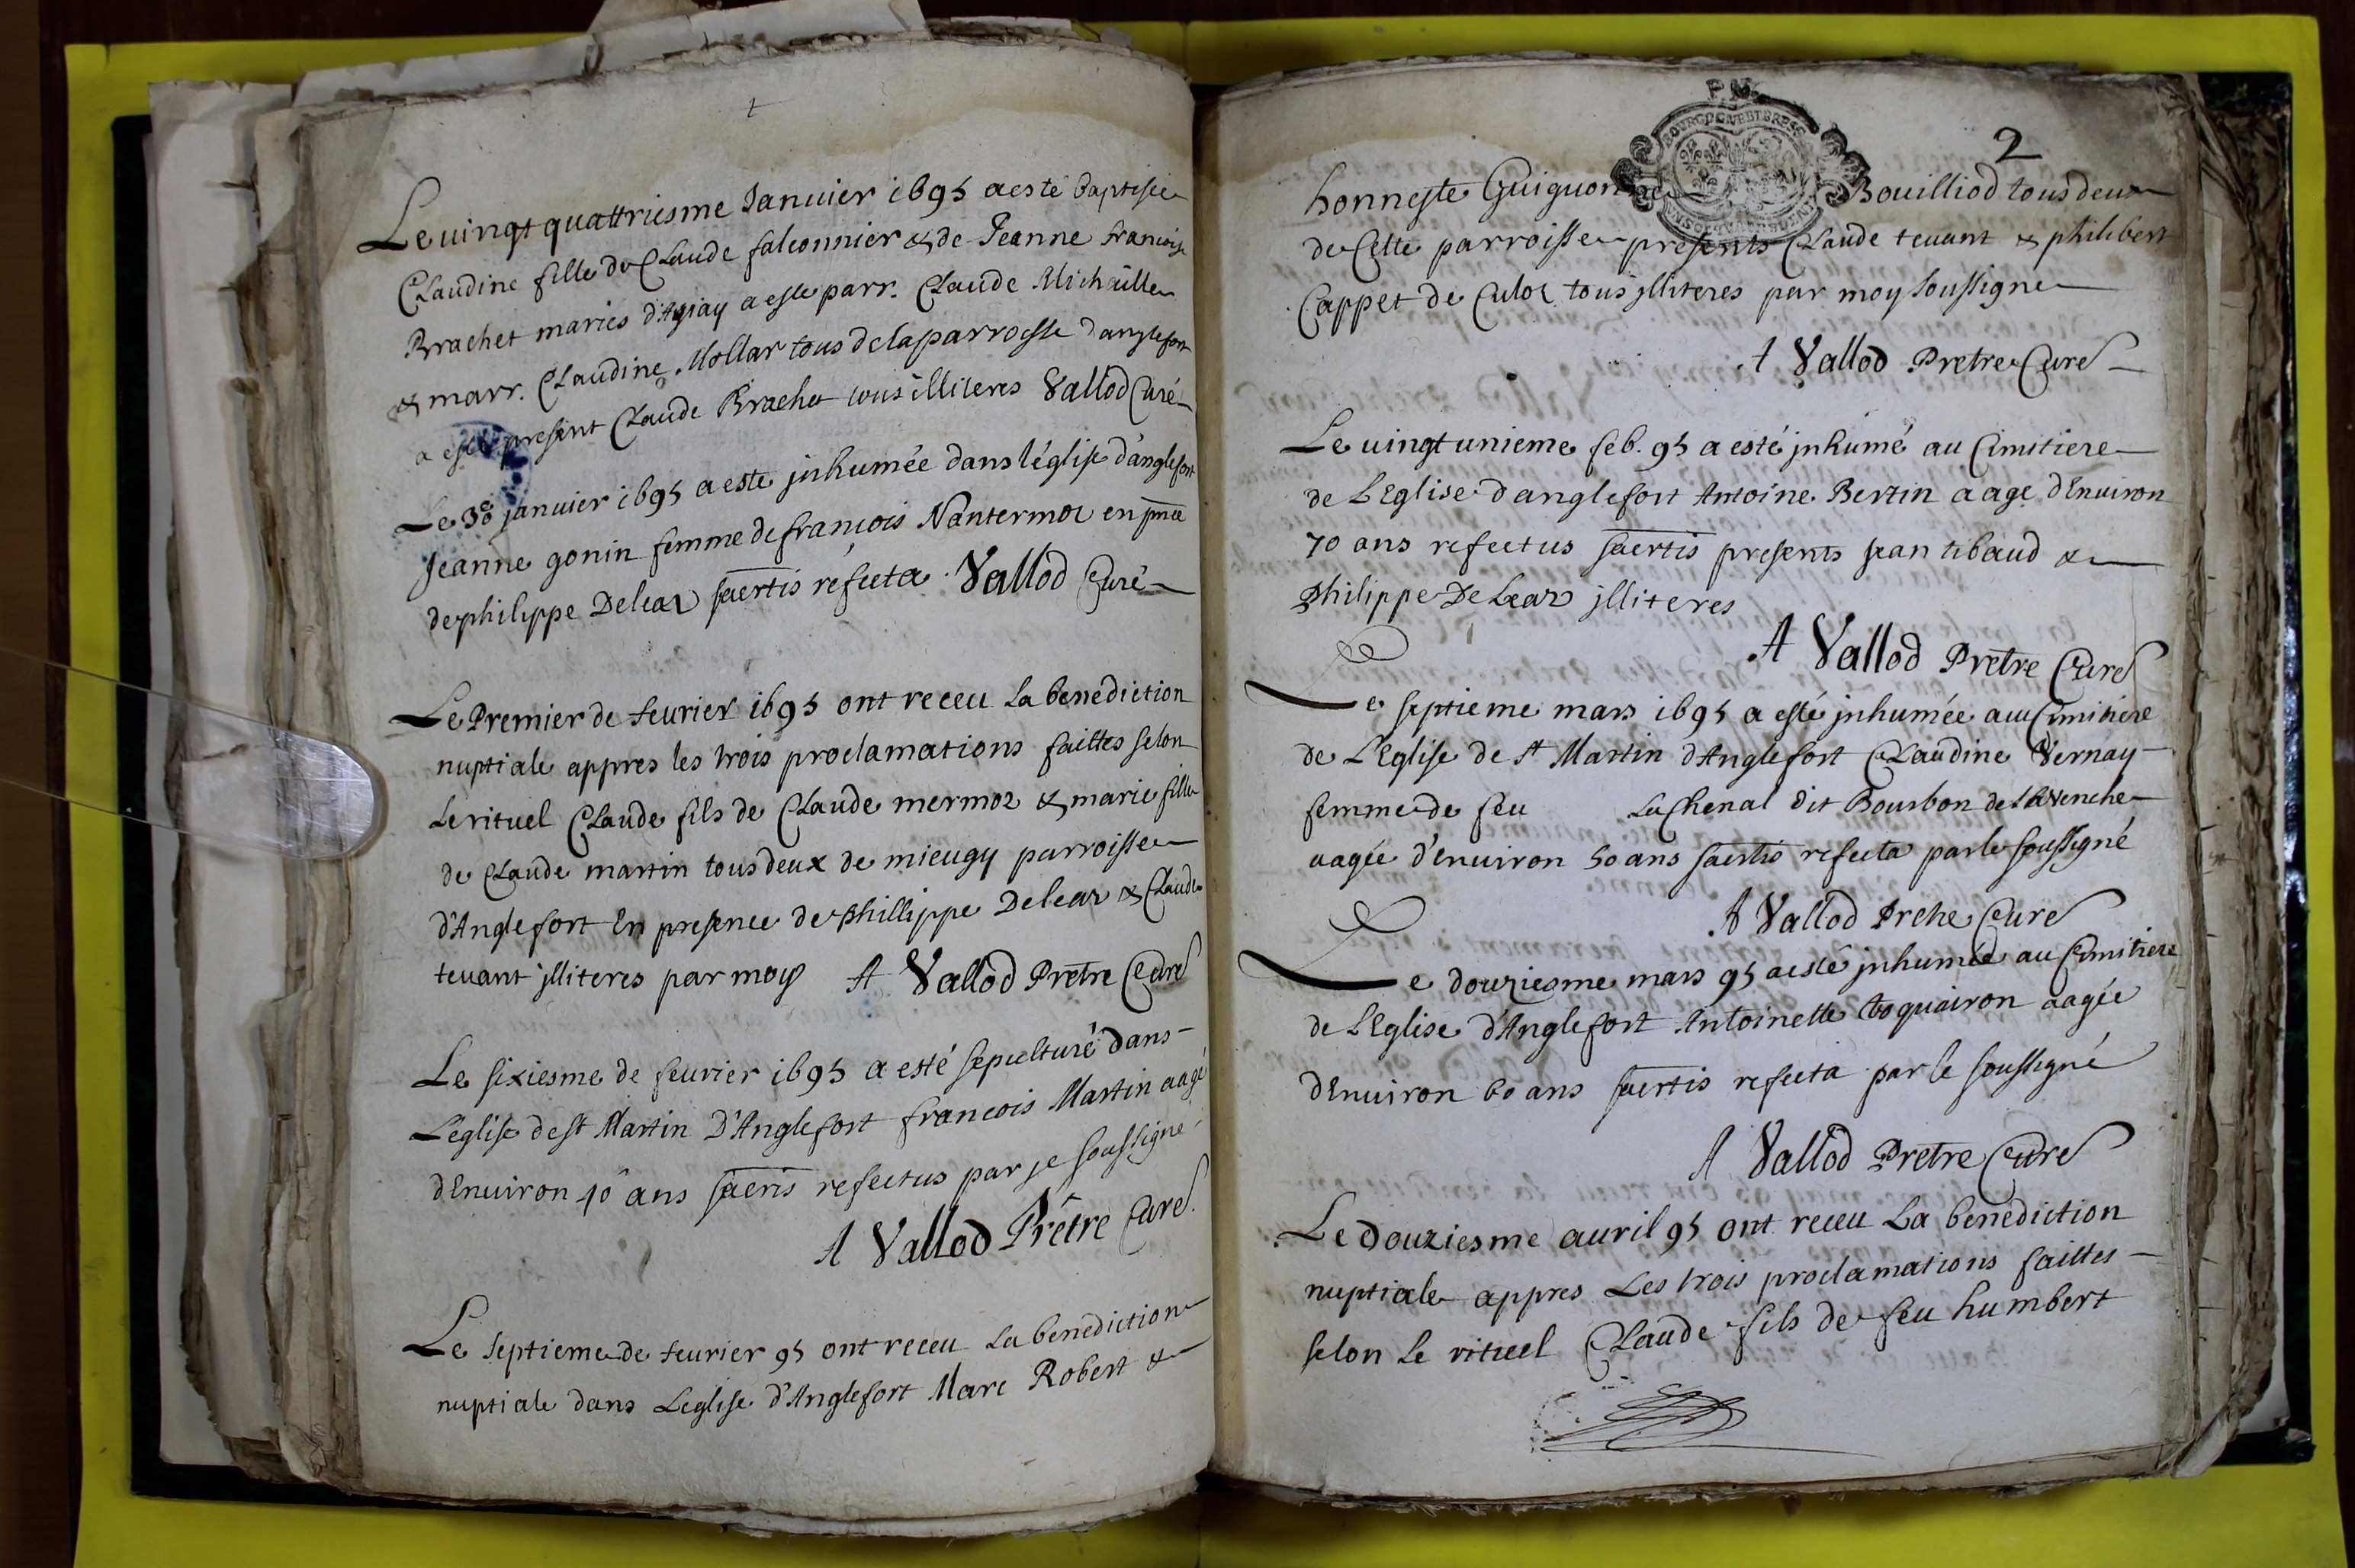 Le vingt quattriesme Janvier 1695 a esté baptisée
Claudine fille de Claude falconnier & de Jeanne francoise
Brachet maries d'Agiay a este parr. Claude Michaille
& marr. Claudine Mollar tous de la parroisse d'anglefort
a este present Claude Brachet tous illiteres Vallod Curé
Le 30 janvier 1695 a este inhumée dans l'église d'anglefort
Jeanne gonin femme de françois Nantermoz en pnce
de philippe Deleaz sacrtis refecta Vallod Curé
Le Premier de fevrier 1695 ont receu la benediction
nuptiale appres les trois proclamations faittes selon
le rituel Claude fils de Claude mermoz & marie fille
de Claude martin tous deux de mieugy parroisse
d'Anglefort En presence de phillippe Deleaz & Claude
tevant illiteres par moy A Vallod Pretre Curé
Le sixiesme de fevrier 1695 a esté sepulturé dans
L'église de st Martin D'Anglefort francois Martin aagé
d'Environ 40 ans sacris refectus par je soussigné
A Vallod Prêtre Curé
Le septieme de fevrier 95 ont receu La benediction
nuptiale dans Leglise d'Anglefort Marc Robert &
2
P M.
BOURGOGNE ET BRESSE
honneste Guiguonne Bouilliod tous deux
de Cette parroisse presents Claude tevant & philibert
Cappet de Culoz tous illiteres par moy soussigne
A Vallod Pretre Curé
Le vingt unieme feb. 95 a esté inhumé au Cimitiere
de L'Eglise d'anglefort Antoine Bertin aage d'Environ
70 ans refectus sacrtis presents jean tibaud &
Philippe De Leaz illiteres
A Vallod Pretre Curé
Le septieme mars 1695 a esté inhumée au Cimitiere
de L'Eglise de st Martin d'Anglefort Claudine Vernay
femme de feu La Chenal dit Bourbon de
aagée d'Environ 50 ans sacrtis refecta par le soussigné
A Vallod Pretre Curé
Le douziesme mars 95 a esté inhumée au Cimitiere
de L'Eglise d'Anglefort Antoinette boquairon aagée
d'Environ 60 ans sacrtis refecta par le soussigné
A Vallod Pretre Curé
Le Douziesme avril 95 ont receu La benediction
nuptiale appres Les trois proclamations faittes
selon Le rituel Claude fils de feu humbert